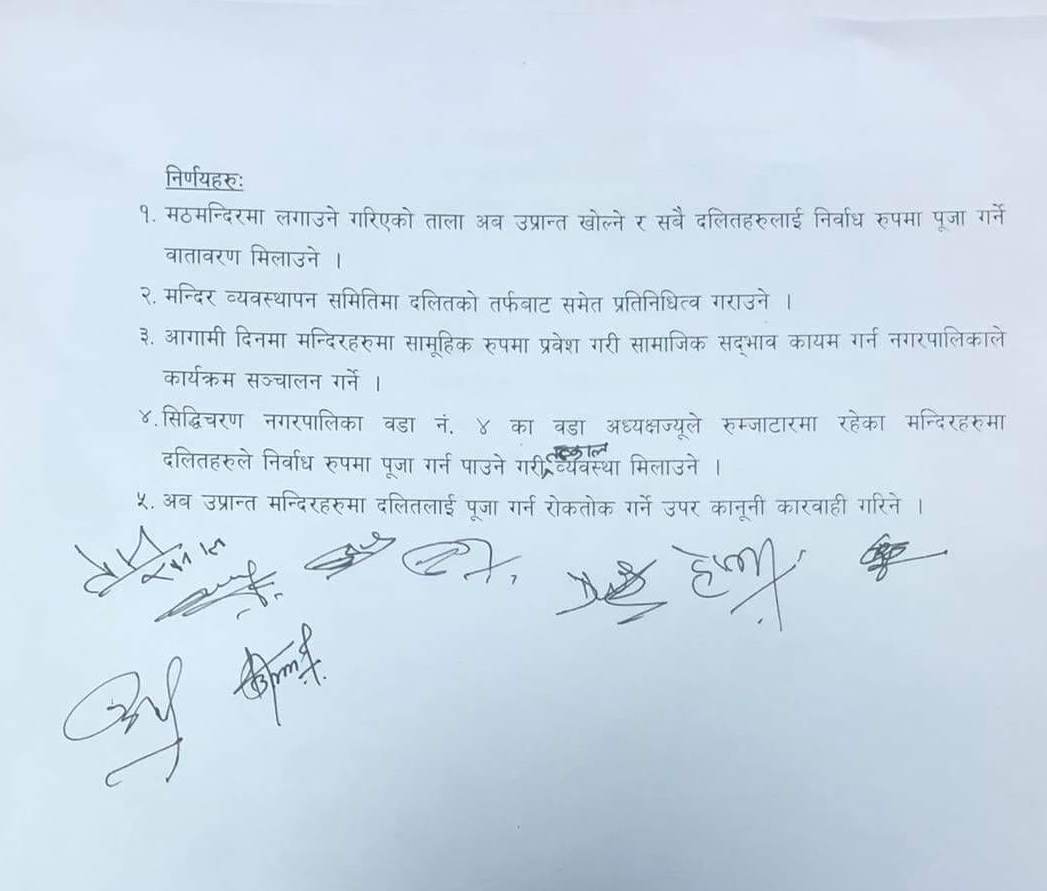 निर्णयहरुः
१. मठमन्दिरमा लगाउने गरिएको ताला अव उप्रान्त खोल्ने र सबै दलितहरुलाई निर्वाध रुपमा पूजा गर्ने
वातावरण मिलाउने ।
२. मन्दिर व्यवस्थापन समितिमा दलितको तर्फबाट समेत प्रतिनिधित्व गराउने ।
३. आगामी दिनमा मन्दिरहरुमा सामूहिक रुपमा प्रवेश गरी सामाजिक सद्‌भाव कायम गर्न नगरपालिकाले
कार्यक्रम सञ्चालन गर्ने ।
४. सिद्धिचरण नगरपालिका वडा नं. ४ का वडा अध्यक्षज्यूले रुम्जाटारमा रहेका मन्दिरहरुमा
दलितहरुले निर्वाध रुपमा पूजा गर्न पाउने गरी तत्काल व्यवस्था मिलाउने ।
५. अव उप्रान्त मन्दिरहरुमा दलितलाई पूजा गर्न रोकतोक गर्ने उपर कानूनी कारवाही गरिने ।